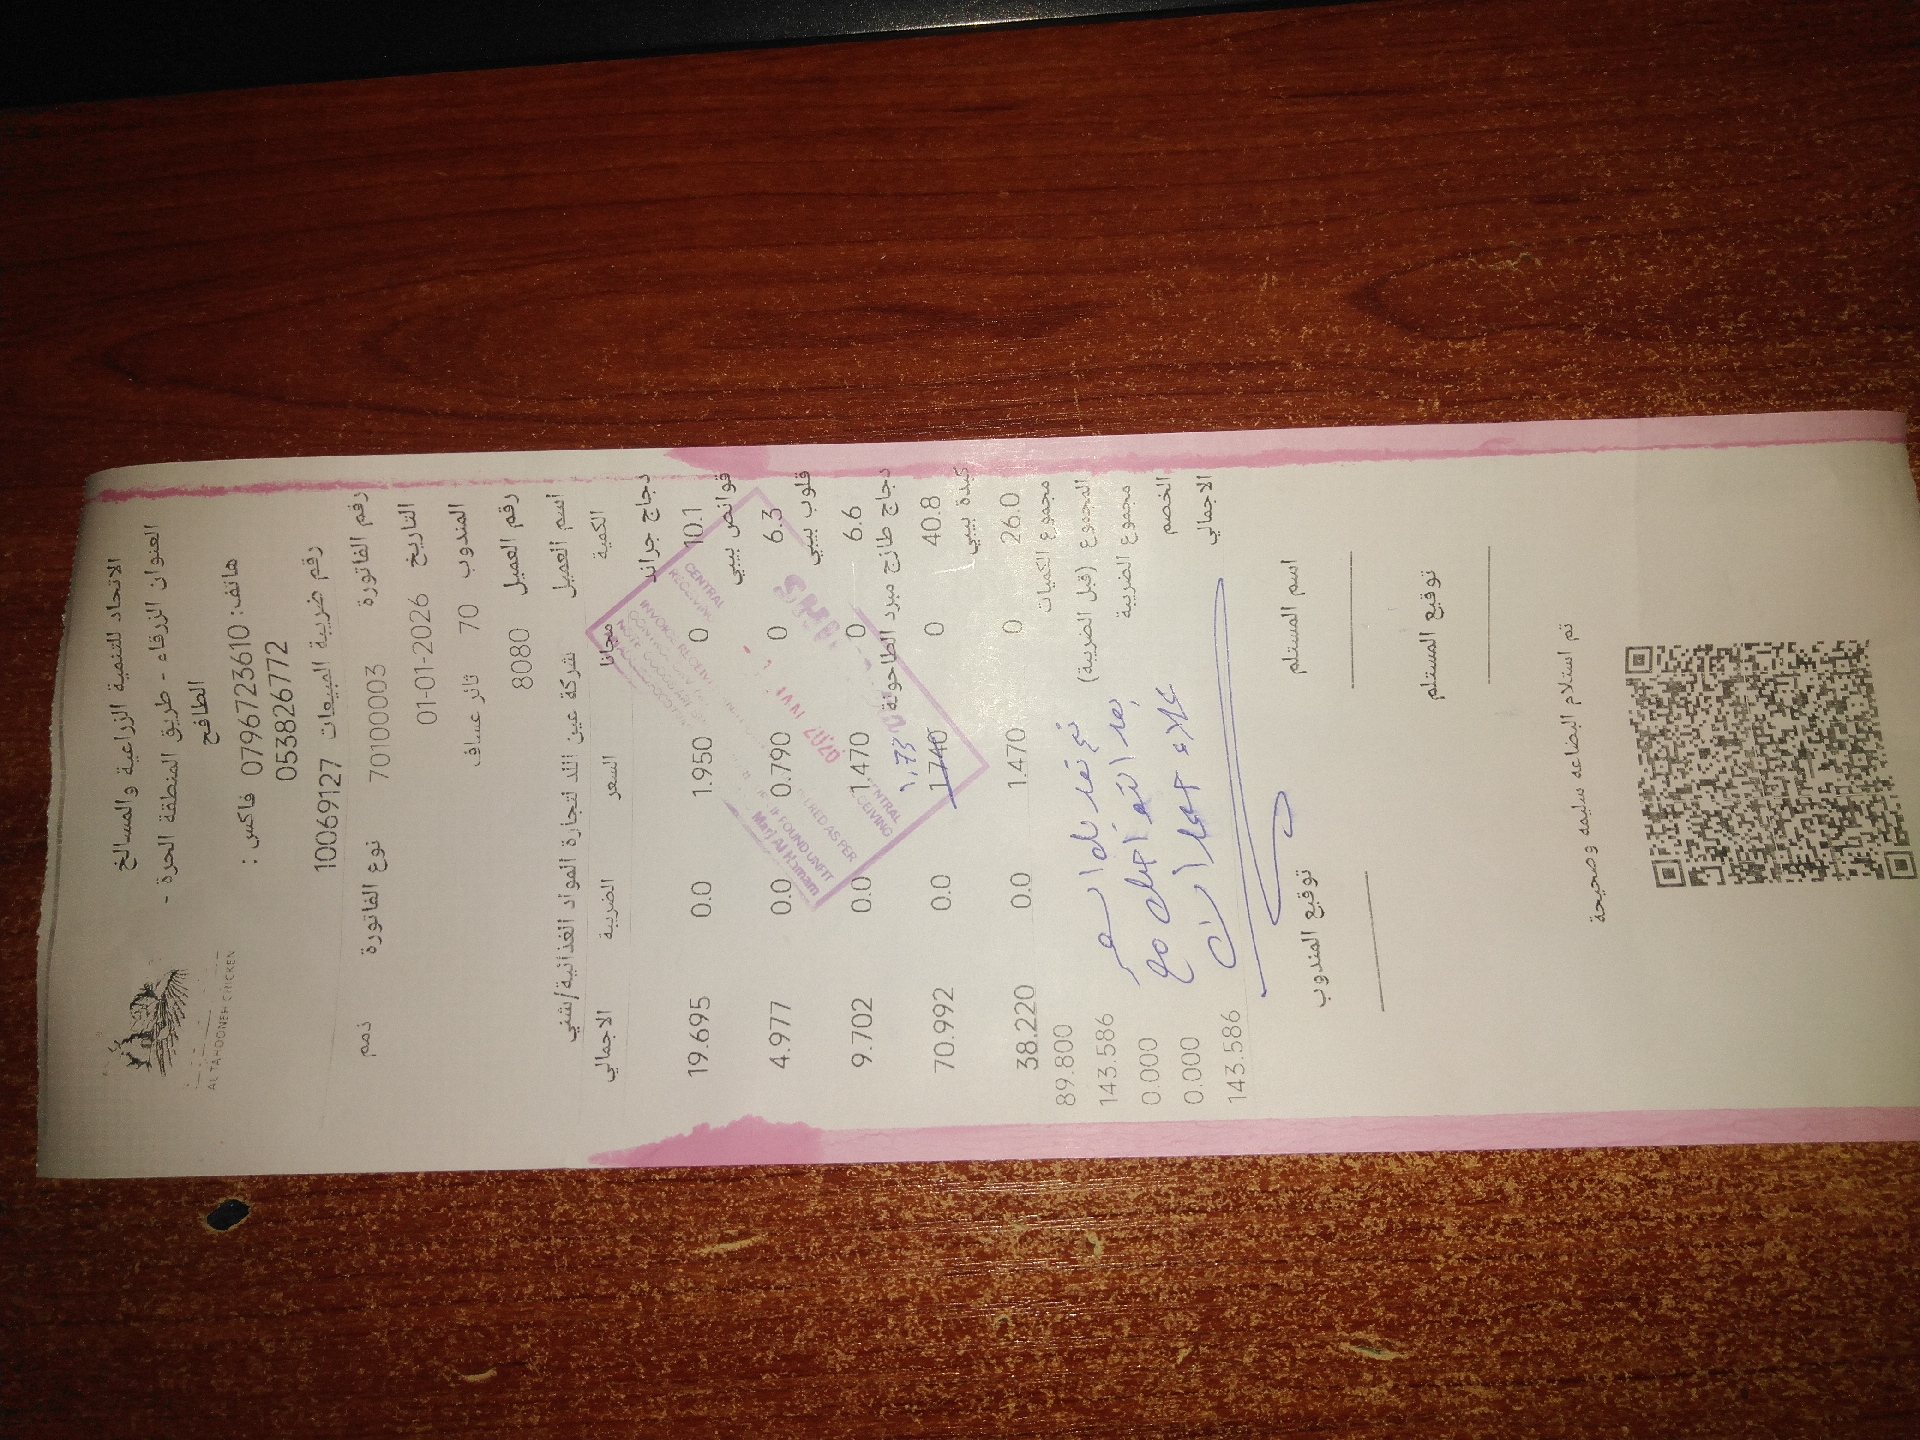 AL TAHOONEH CHICKEN
الاتحاد للتنمية الزراعية والمسالخ
العنوان الزرقاء - طريق المنطقة الحرة -
الطافح
هاتف: 0796723610 فاكس :
0538826772
رقم ضريبة المبيعات 10069127
رقم الفاتورة 70100003 نوع الفاتورة ذمم
التاريخ 01-01-2026
المندوب 70 ثائر عساف
رقم العميل 8080
اسم العميل شركة عين اللد لتجارة المواد الغذائية/شني
الكمية مجانا السعر الضريبة الاجمالي
دجاج جراند
10.1 0 1.950 0.0 19.695
قوانص بيبي
6.3 0 0.790 0.0 4.977
قلوب بيبي
6.6 0 1.470 0.0 9.702
دجاج طازج مبرد الطاحونة
1,73
40.8 0 1.740 0.0 70.992
كبدة بيبي
26.0 0 1.470 0.0 38.220
مجموع الكميات 89.800
المجموع (قبل الضريبة) 143.586
مجموع الضريبة 0.000
الخصم 0.000
الاجمالي 143.586
CENTRAL
RECEIVING
JAN
FOUND UNFIT
Marj Al Hamam
تم تعديل السعر
بعد التواصل مع
علاء
اسم المستلم توقيع المندوب
توقيع المستلم
تم استلام البضاعه سليمه وصحيحة